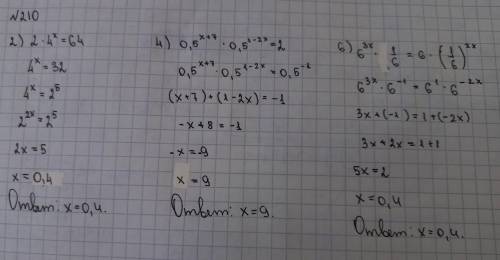 №210
2) 2·4^x=64
4^x=32
4^x=2^5
2^2x=2^5
2x=5
x=0,4
Ответ: x=0,4.
4) 0,5^x+7·0,5^1-2x=2
0,5^x+7·0,5^1-2x=0,5^-1
(x+7)+(1-2x)=-1
-x+8=-1
-x=-9
x=9
Ответ: x=9.
6) 6^3x·1/6=6·(1/6)^2x
6^3x·6^-1=6^1·6^-2x
3x+(-1)=1+(-2x)
3x+2x=1+1
5x=2
x=0,4
Ответ: x=0,4.